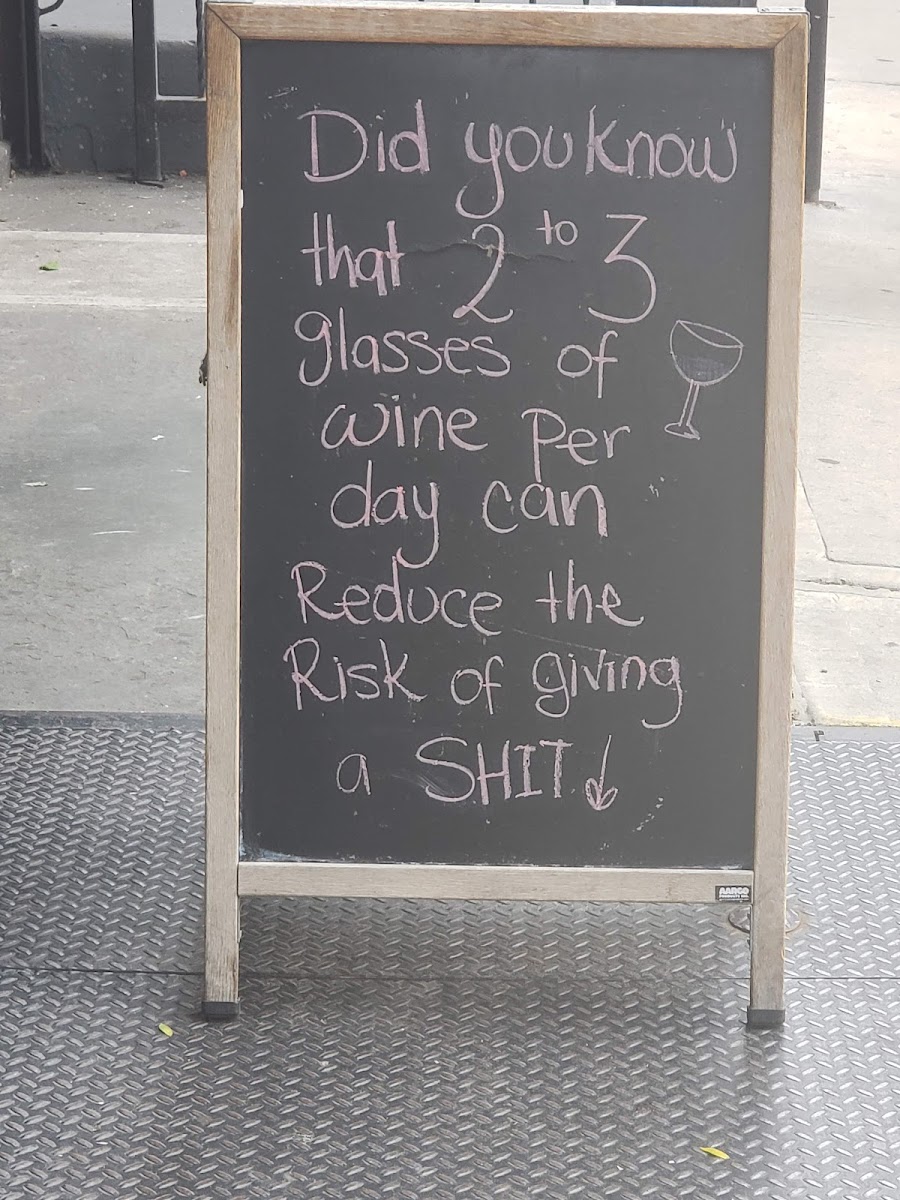 Did you know
that 2 to 3
glasses of
wine per
day can
Reduce the
Risk of giving
a SHIT
AARCO
PRODUCTS INC.